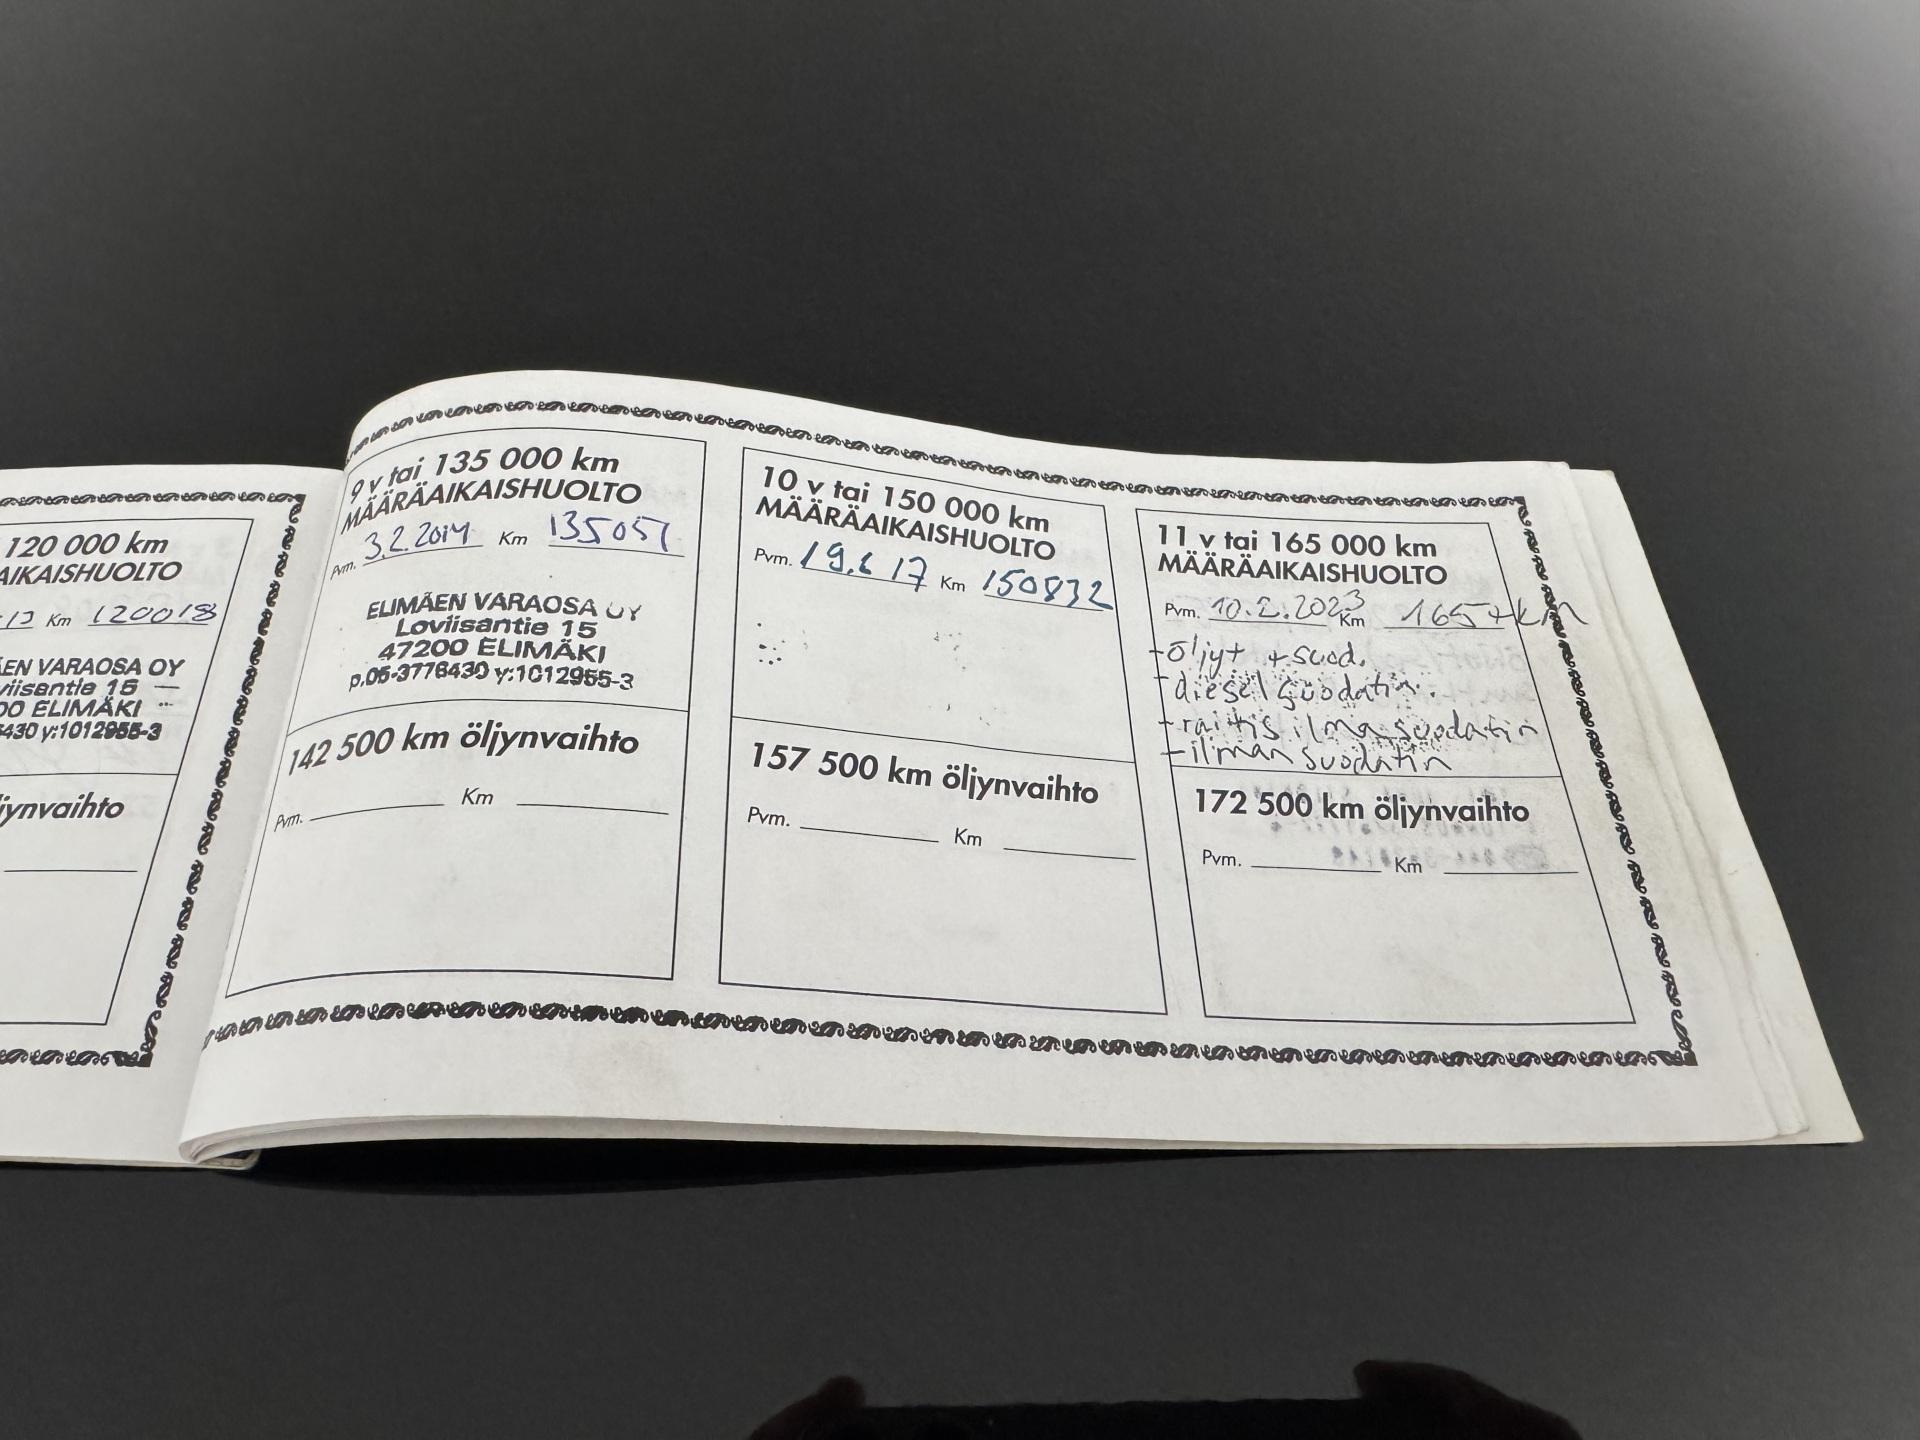 120 000 km
AIKAISHUOLTO
Km 120018
ÄEN VARAOSA OY
viisantie 15
00 ELIMÄKI
6430 y:1012955-3
jynvaihto
9 v tai 135 000 km
MÄÄRÄAIKAISHUOLTO
Pvm. 3.2.2014 Km 135051
ELIMÄEN VARAOSA OY
Loviisantie 15
47200 ELIMÄKI
p.05-3776430 y:1012955-3
142 500 km öljynvaihto
Pvm. Km
10 v tai 150 000 km
MÄÄRÄAIKAISHUOLTO
Pvm. 19.6 17 Km 150832
157 500 km öljynvaihto
Pvm. Km
11 v tai 165 000 km
MÄÄRÄAIKAISHUOLTO
Pvm. 10.2.2023 Km 165 tkm
- öljyt + suod.
- diesel suodatin.
- raitis ilmasuodatin
- ilman suodatin
172 500 km öljynvaihto
Pvm. Km